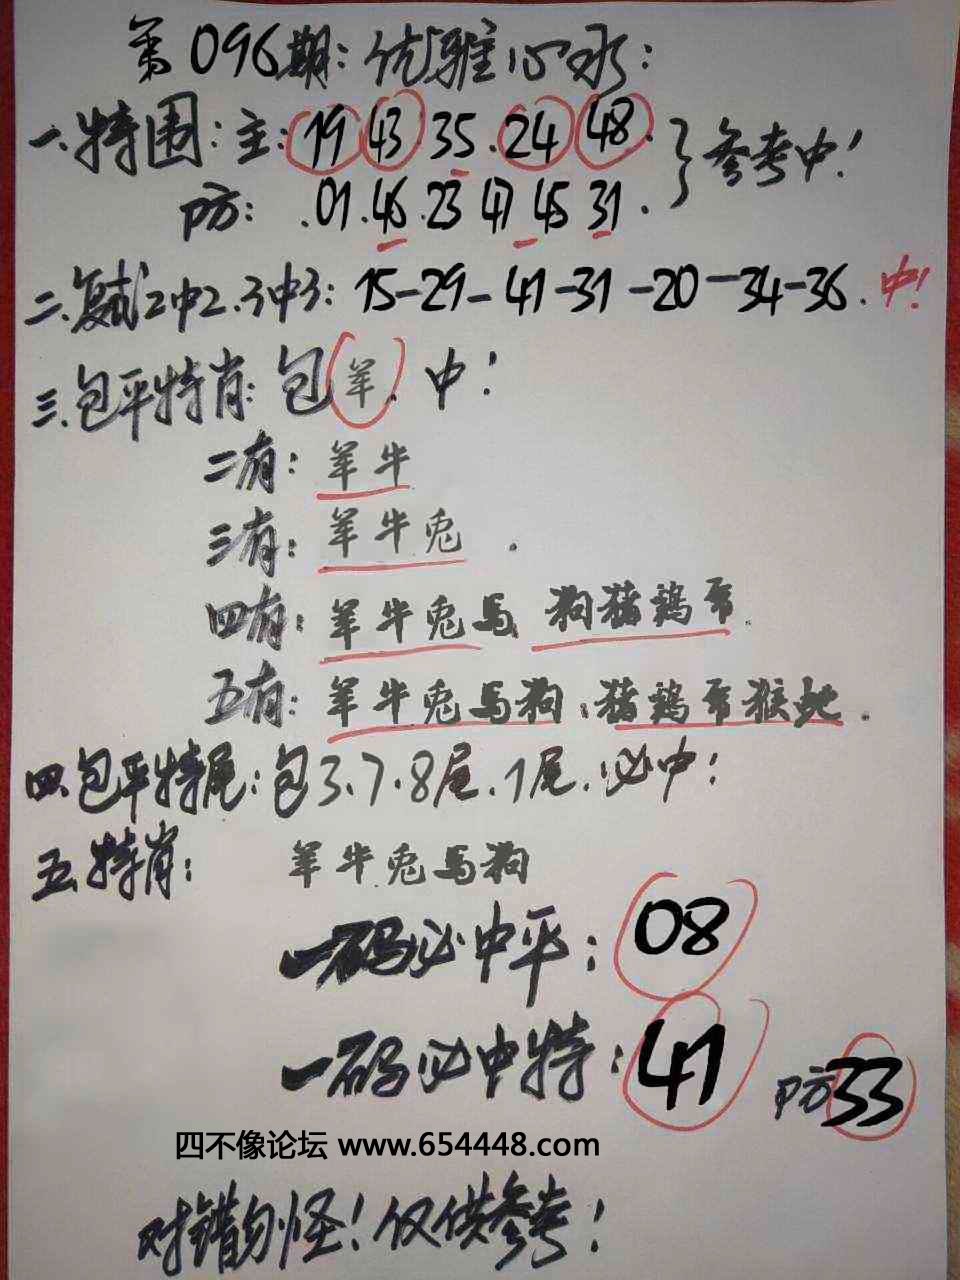 第096期:优雅心水:
一.特围:主:19 43 35.24 48.}参考中!
防:.01.46.23 47 45 31.
二.复式2中2.3中3:15-29-41-31-20-34-36.中!
三.包平特肖:包羊.中!
二有:羊牛
三有:羊牛兔.
四有:羊牛兔马 狗猪鸡
五有:羊牛兔马狗.猪鸡 猴蛇.
四.包平特尾:包3.7.8尾.1尾.必中!
五.特肖:羊牛兔马狗
一码必中平:08
一码必中特:41 防33
四不像论坛 www.654448.com
对错勿怪!仅供参考!